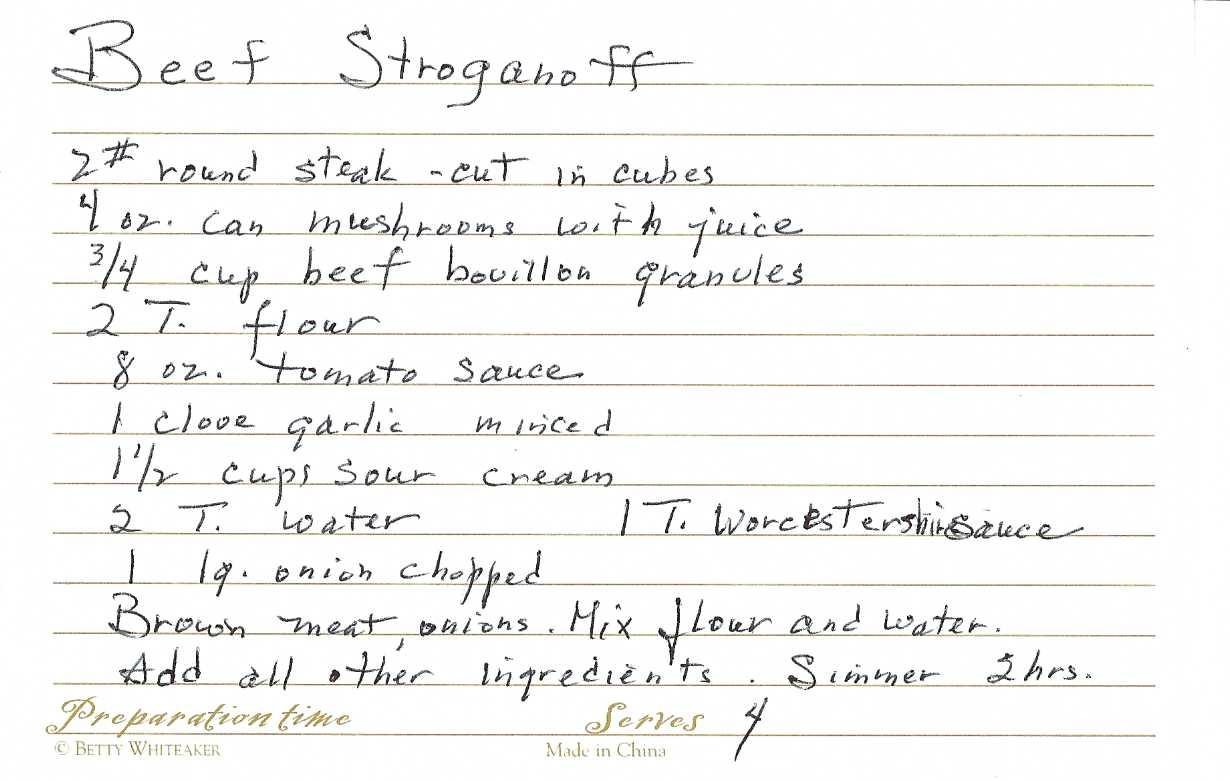 Beef Stroganoff
2# round steak - cut in cubes
4 oz. can mushrooms with juice
3/4 cup beef bouillon granules
2 T. flour
8 oz. tomato sauce
1 clove garlic minced
1 1/2 cups sour cream
2 T. water 1 T. Worcestershire sauce
1 lg. onion chopped
Brown meat, onions. Mix flour and water.
Add all other ingredients. Simmer 2 hrs.
Preparation time Serves 4
© BETTY WHITEAKER Made in China